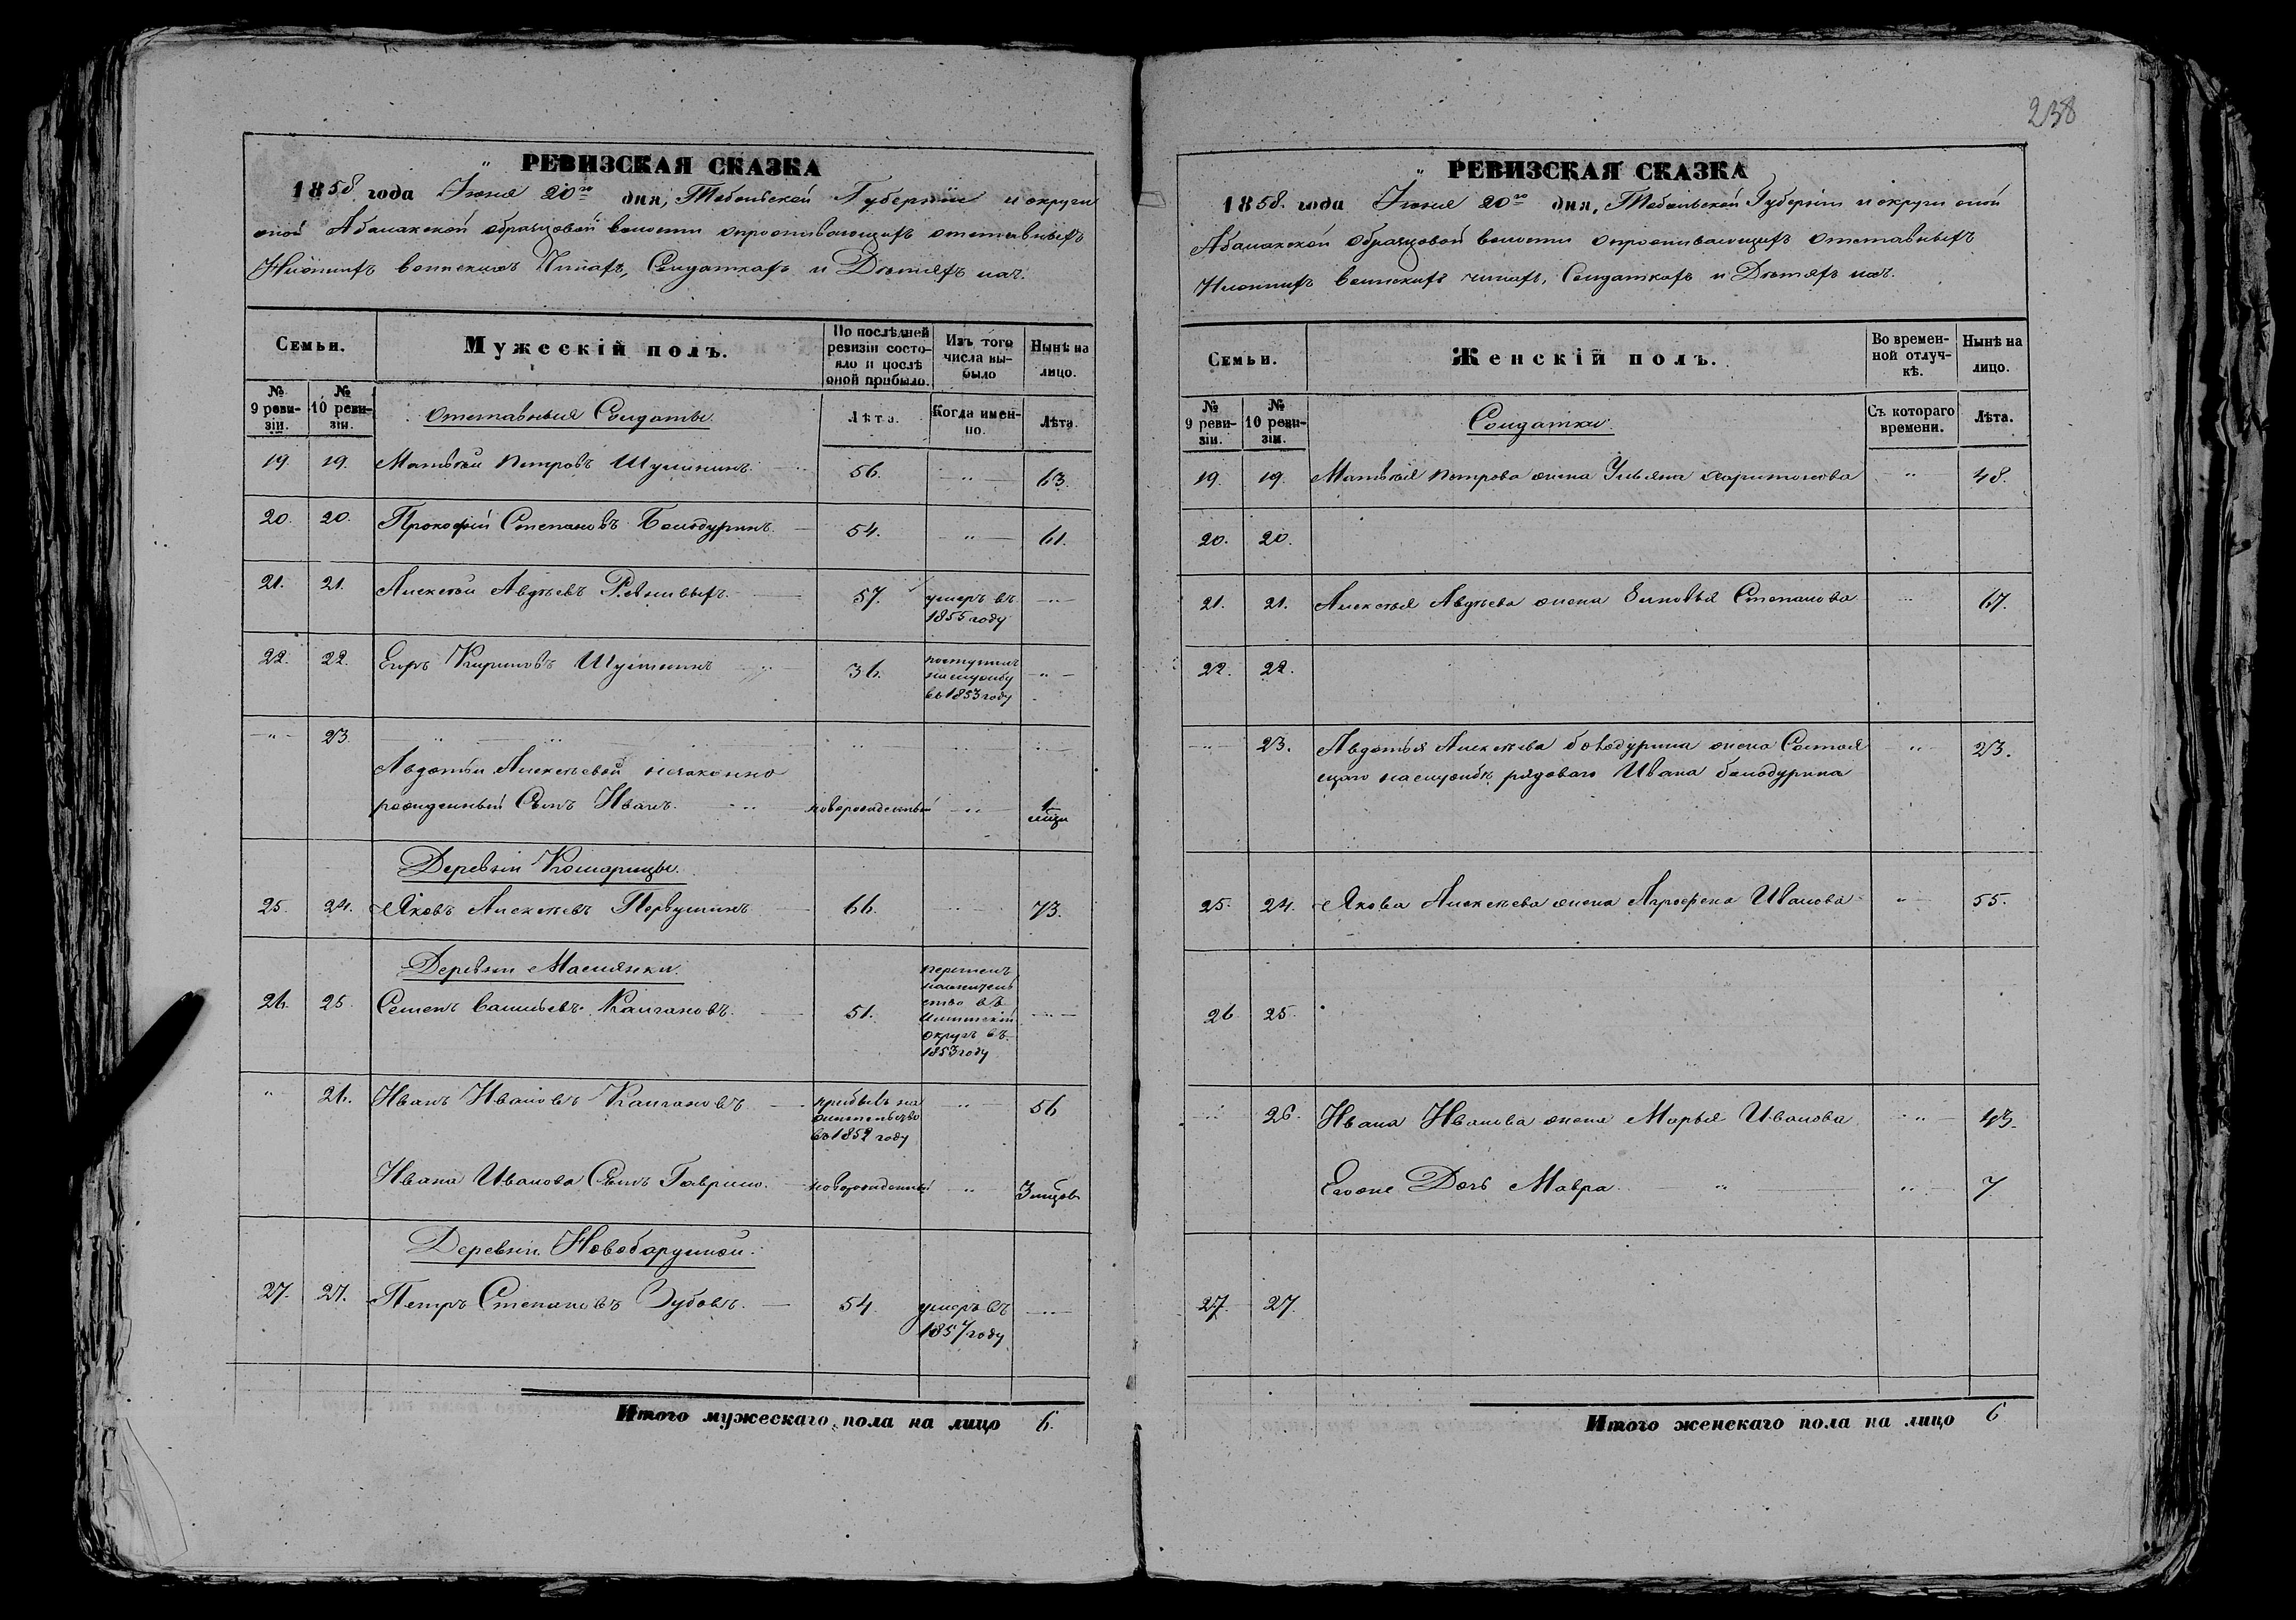 238
РЕВИЗСКАЯ СКАЗКА
1858 года Іюня 20го дня, Тобольской Губерніи и округи
оной Абалакской образцовой волости о проживающихъ отставныхъ
Нижнихъ воинскихъ Чинахъ, Солдаткахъ и Дѣтяхъ ихъ.
Семьи.
Мужескій полъ.
По послѣдней ревизіи состо-
яло и послѣ оной прибыло.
Изъ того числа вы-
было
Нынѣ на лицо.
№ 9 реви-
зіи.
№ 10 реви-
зіи.
Отставныя Солдаты.
Лѣта.
Когда имен-
но.
Лѣта.
19. 19. Матвѣй Петровъ 56. " 63.
20. 20. Прокофій Степановъ Болодуринъ 54. " 61.
21. 21. Алексѣй Авдѣевъ 57. умеръ въ "
1855 году
22. 22. Егоръ Кириловъ 36. поступилъ
на службу "
въ 1853 году
" 23.
Авдотьи Алексѣевой незаконно
рожденный Сынъ Иванъ. новорожденный " 1
Деревни
25. 24. Яковъ Алексѣевъ Первушинъ 66. " 73.
Деревни Маслянки.
26. 25. Семенъ Васильевъ Калгановъ 51.
въ
Ишимскій
округъ въ
1853 году
" 26. Иванъ Ивановъ Калгановъ прибылъ на " 56
жительство
въ 1852 году
Ивана Иванова Сынъ Гаврило. новорожденный " 3
Деревни
27. 27. Петръ Степановъ Зубовъ. 54. умеръ въ "
1857 году
Итого мужескаго пола на лицо 6.
РЕВИЗСКАЯ СКАЗКА
1858. года Іюня 20го дня, Тобольской Губерніи и округи оной
Абалакской образцовой волости о проживающихъ отставныхъ
Нижнихъ воинскихъ чинахъ, Солдаткахъ и Дѣтяхъ ихъ.
Семьи.
Женскій полъ.
Во времен-
ной отлуч-
кѣ.
Нынѣ на лицо.
№ 9 реви-
зіи.
№ 10 реви-
зіи.
Солдатки.
Съ котораго времени.
Лѣта.
19. 19. Матвѣя Петрова жена Ульяна Харитонова " 48.
20. 20.
21. 21. Алексѣя Авдѣева жена Степанова " 67.
22. 22.
" 23. Авдотья Алексѣева Болодурина жена Состоя " 23.
щаго на службѣ рядоваго Ивана Болодурина
25. 24. Якова Алексѣева жена Агрофена Иванова " 55.
26 25.
" 26. Ивана Иванова жена Марья Иванова " 43.
Егоже Дочь Мавра " 7
27. 27.
Итого женскаго пола на лицо 6